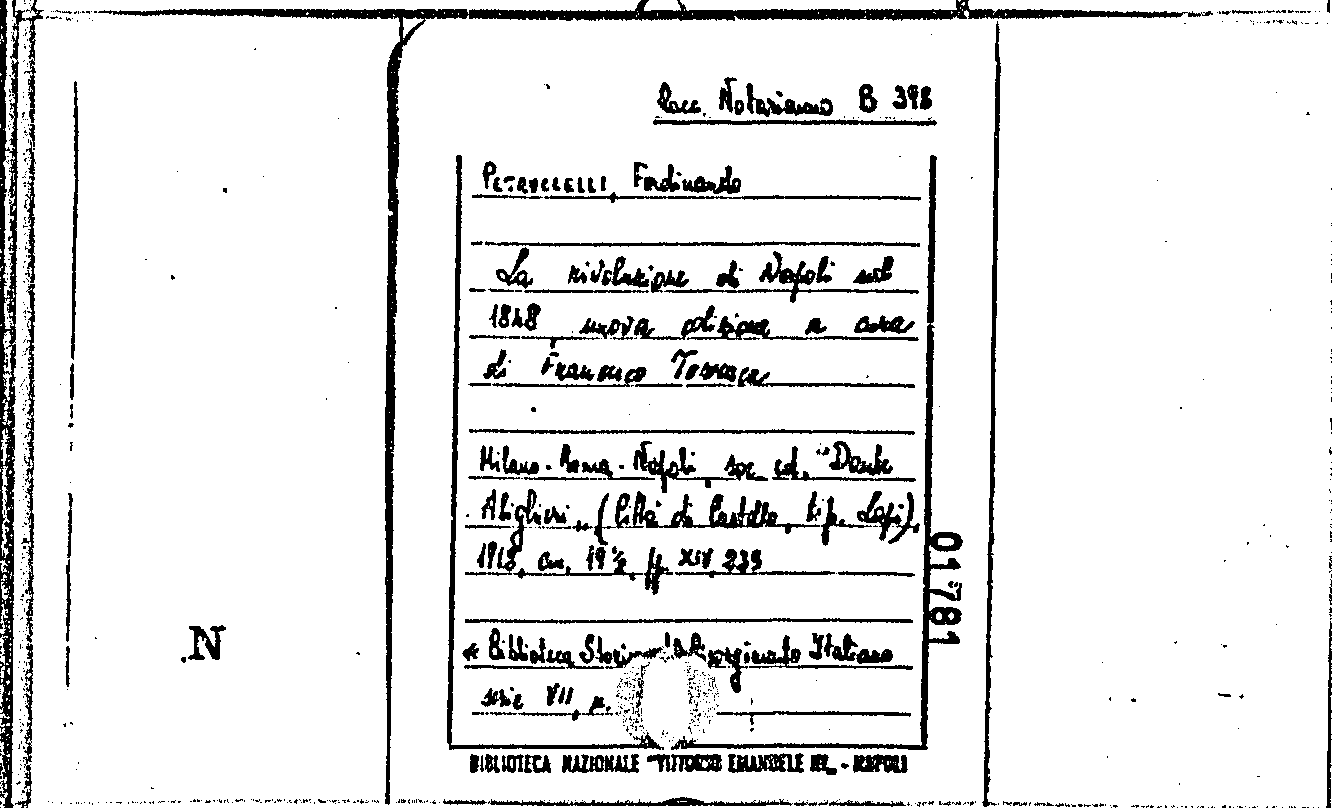 Racc. Notariamo B 398
PETRUCCELLI, Ferdinando
La rivoluzione di Napoli nel
1848, nuova edizione a cura
di Francesco Torraca
Milano-Roma-Napoli, soc. ed. "Dante
Alighieri", (Città di Castello, tip. Lapi),
1913, cm. 19½, pp. XIV, 239
« Biblioteca Storica del Risorgimento Italiano
serie VII, n.
01781
N
BIBLIOTECA NAZIONALE "VITTORIO EMANUELE III" - NAPOLI